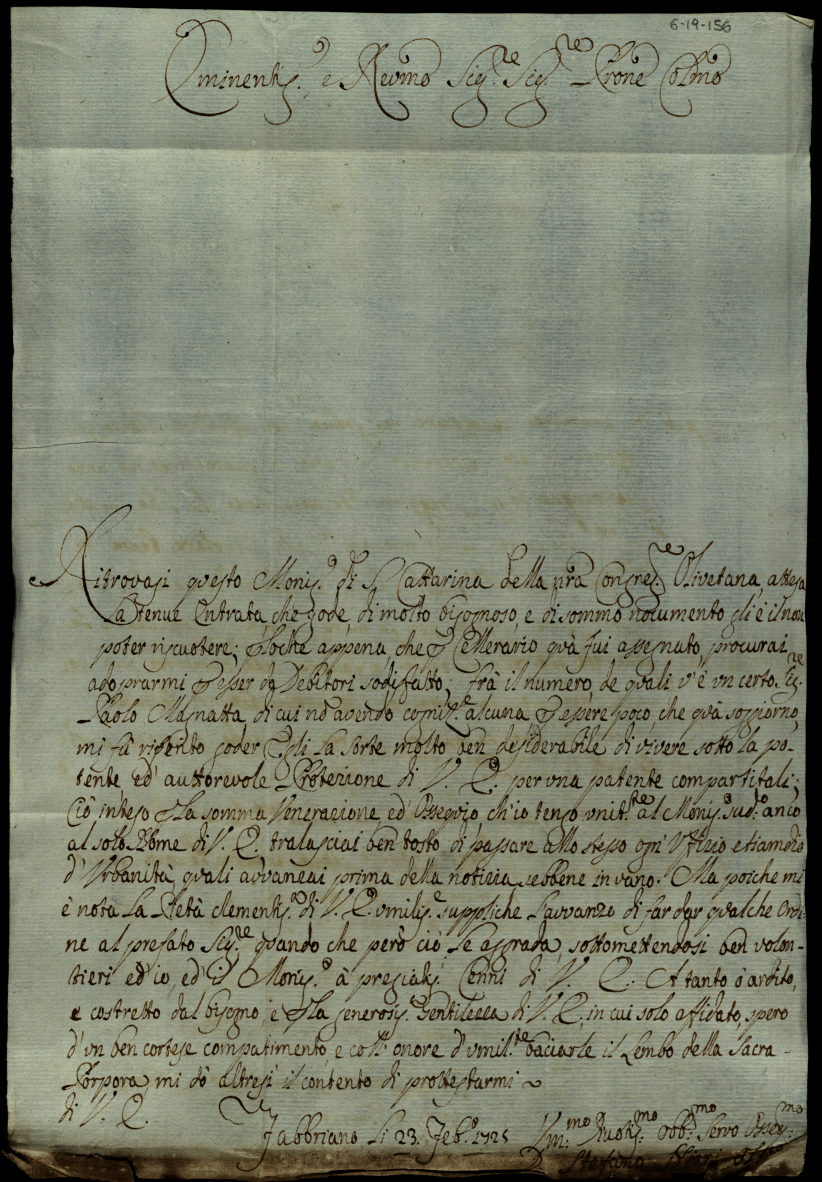 6-19-156
Eminentis. e Revmo Sig.re Sig.re Prone Colmo
Ritrovasi questo Monis.o di S. Cattarina della nra Congreg.ne Olivetana, attesa
la tenue Entrata, che gode, di molto bisognoso, e di sommo nocumento gli è il non
poter riscuotere; Poche appena, che P Cellerario quà fui assegnato, procurai
adoprarmi P esser da Debitori sodisfatto; frà il numero de quali v'è un certo Sig.re
Paolo Magnatta, di cui nō avendo cogniz.e alcuna, P essere poco, che quà soggiorno,
mi fù riferito goder Egli la sorte molto ben desiderabile di vivere sotto la po-
tente, ed' auttorevole Protezzione di V. E. per una patente compartitali;
Ciò inteso P la somma Venerazione, ed' Ossequio ch'io tengo unit.te al Monis. sud.o anco
al solo Nome di V. E. tralasciai ben tosto di passare allo stesso ogn' Uffizio etiamdio
d' Urbanità, quali avvanzai prima della notizia, sebbene invano. Ma poiche mi
è nota la Pietà clementis.a di V. E. umilis.e suppliche l'avvanzo di far dar qualche Ordi-
ne al prefato Sig.re quando che però ciò Le aggrada, sottomettendosi ben volon-
tieri ed' io, ed' il Monis.o à pregiatis. Cenni di V. E. A tanto ò ardito,
e costretto dal bisogno, e P la generosis. Gentilezza di V. E. in cui solo affidato, spero
d'un ben cortese compatimento, e coll' onore d'umil.te baciarle il Lembo della Sacra
Porpora, mi dò altresì il contento di prottestarmi
di V. E.
Fabbriano li 23. Feb.o 1725
Um:mo Divotis:mo Obb:mo Servo Osseq:mo
D. Steffano